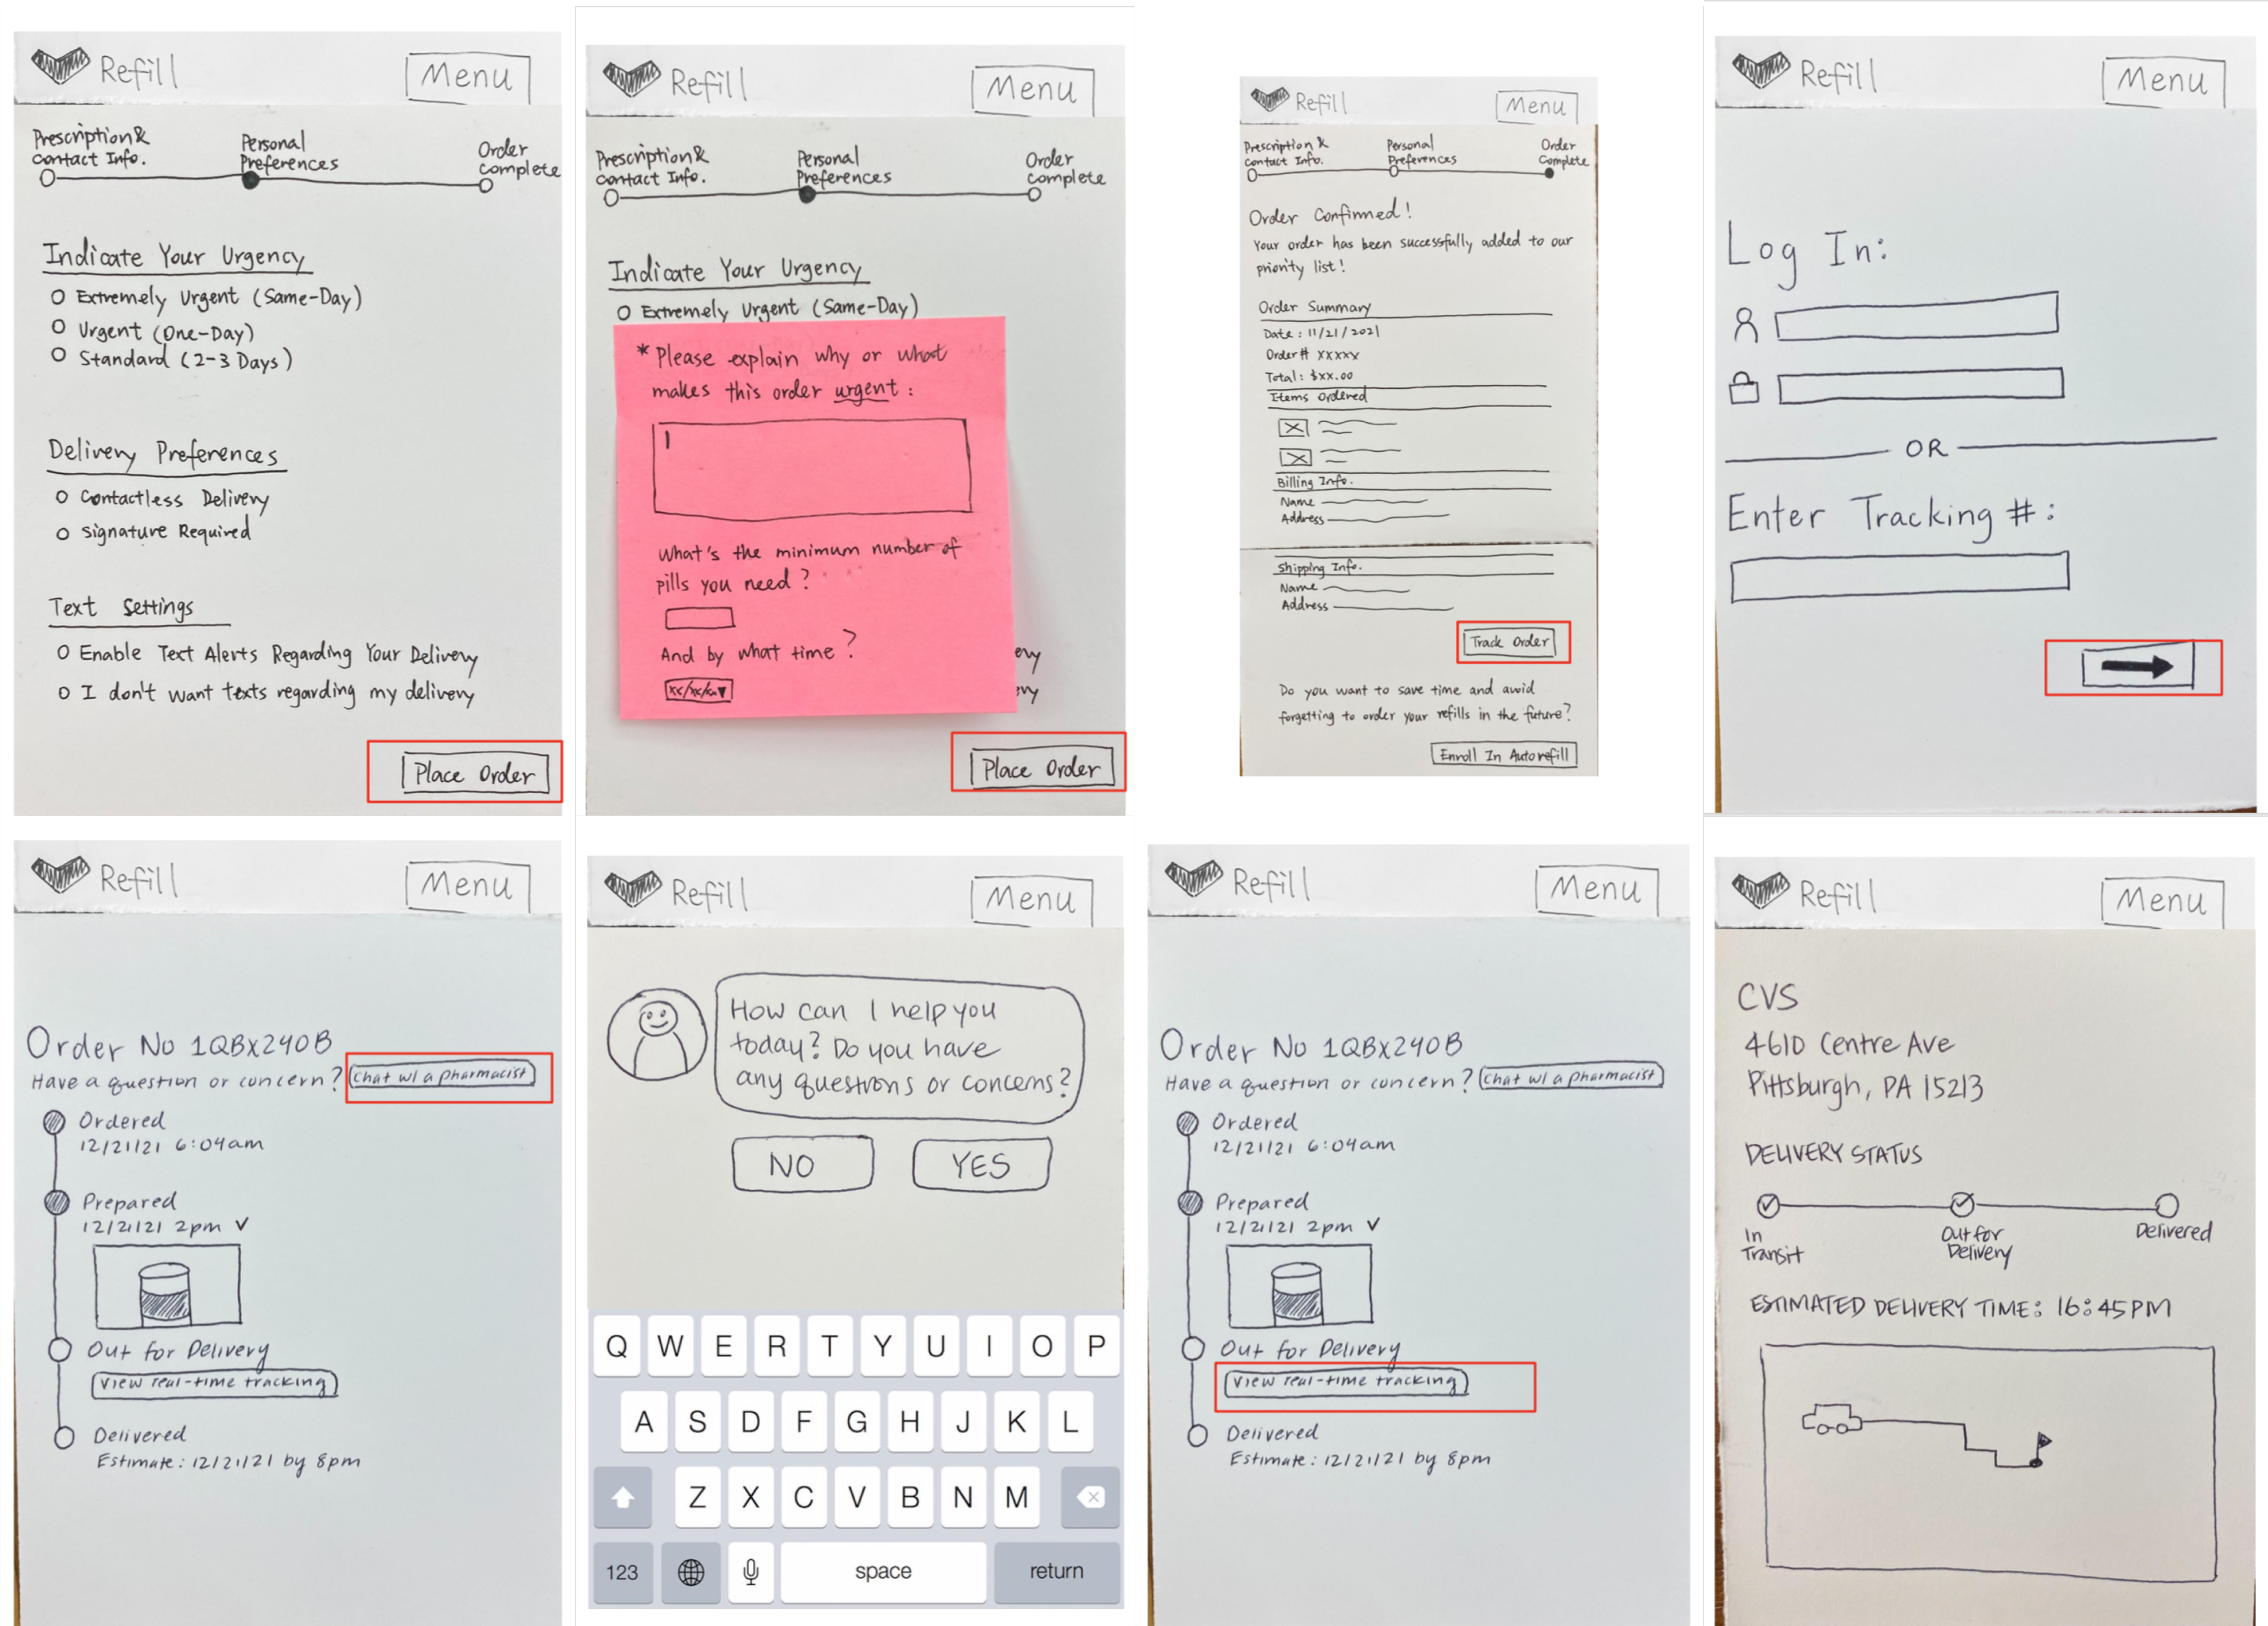 Refill
Menu
Prescription &
Contact Info.
Personal
Preferences
Order
Complete
Indicate Your Urgency
Extremely Urgent (Same-Day)
Urgent (One-Day)
Standard (2-3 Days)
Delivery Preferences
Contactless Delivery
Signature Required
Text Settings
Enable Text Alerts Regarding Your Delivery
I don't want texts regarding my delivery
Place Order
Refill
Menu
Prescription &
Contact Info.
Personal
Preferences
Order
Complete
Indicate Your Urgency
Extremely Urgent (Same-Day)
*Please explain why or what
makes this order urgent :
What's the minimum number of
pills you need?
And by what time?
ery
ery
Place Order
Refill
Menu
Prescription &
Contact Info.
Personal
Preferences
Order
Complete
Order Confirmed!
Your order has been successfully added to our
priority list!
Order Summary
Date : 11/21/2021
Order# xxxxx
Total: $xx.00
Items Ordered
Billing Info.
Name
Address
Shipping Info.
Name
Address
Track Order
Do you want to save time and avoid
forgetting to order your refills in the future?
Enroll In Autorefill
Refill
Menu
Log In:
OR
Enter Tracking #:
Refill
Menu
Order No 1QBX240B
Have a question or concern? Chat w/ a pharmacist
Ordered
12/21/21 6:04am
Prepared
12/21/21 2pm ✓
Out for Delivery
View real-time tracking
Delivered
Estimate: 12/21/21 by 8pm
Refill
Menu
How can I help you
today? Do you have
any questions or concerns?
NO YES
Q W E R T Y U I O P
A S D F G H J K L
Z X C V B N M
123 space return
Refill
Menu
Order No 1QBX240B
Have a question or concern? Chat w/ a pharmacist
Ordered
12/21/21 6:04am
Prepared
12/21/21 2pm ✓
Out for Delivery
View real-time tracking
Delivered
Estimate: 12/21/21 by 8pm
Refill
Menu
CVS
4610 Centre Ave
Pittsburgh, PA 15213
DELIVERY STATUS
In
Transit
Out for
Delivery
Delivered
ESTIMATED DELIVERY TIME: 16:45PM